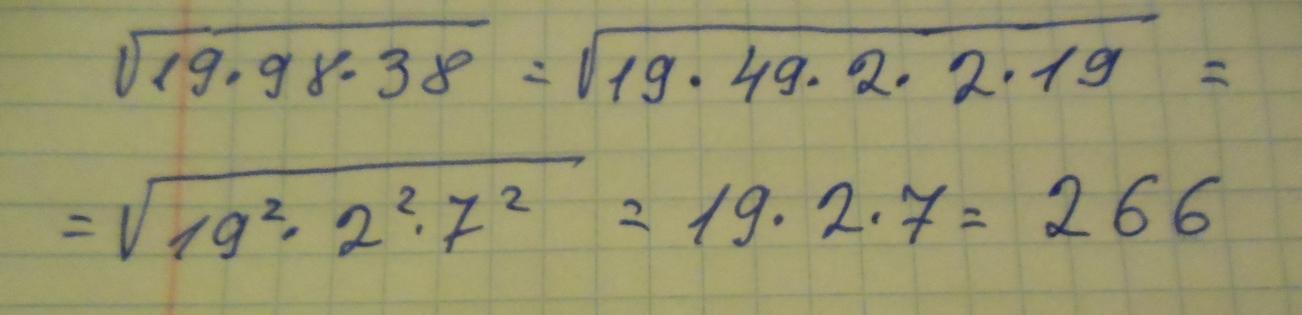 √19·98·38 = √19·49·2·2·19 =
= √19²·2²·7² = 19·2·7 = 266